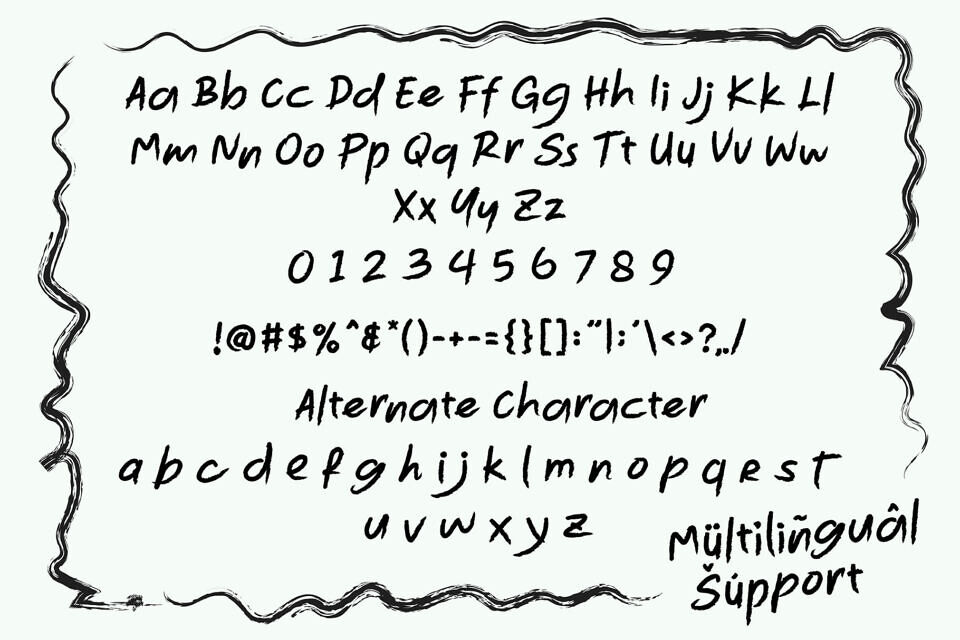 Aa Bb Cc Dd Ee Ff Gg Hh Ii Jj Kk Ll
Mm Nn Oo Pp Qq Rr Ss Tt Uu Vv Ww
Xx Yy Zz
0 1 2 3 4 5 6 7 8 9
!@#$%^&*()-+-={}[]:"|;'\<>?,./
Alternate Character
a b c d e f g h i j k l m n o p q R s T
u v w x y z
Mültiliñguâl
Šúpport